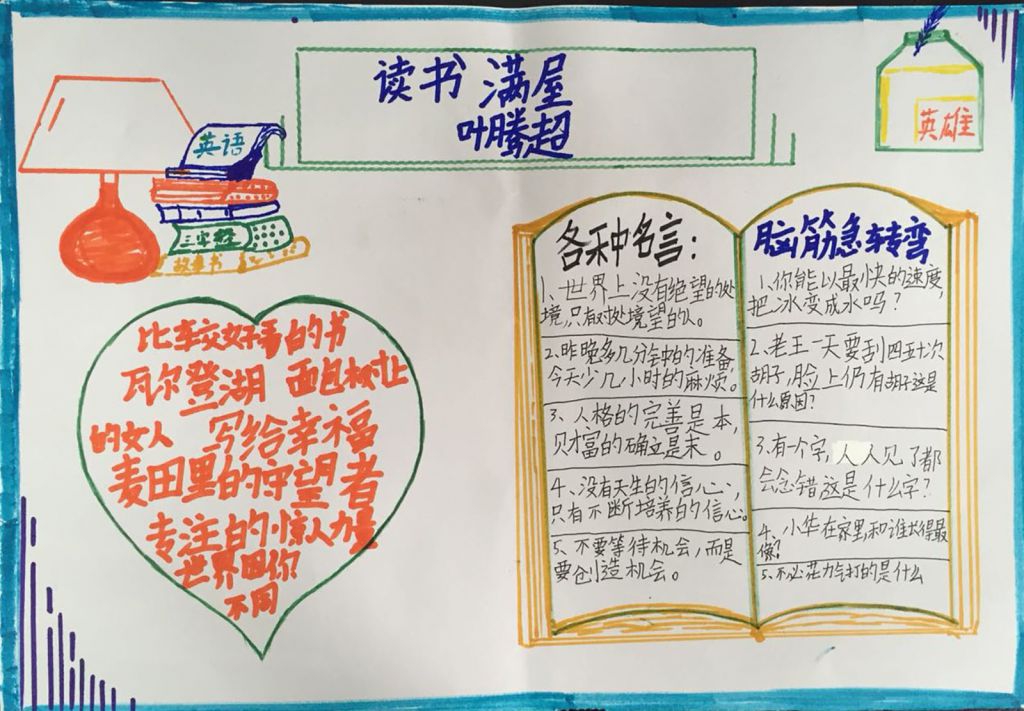 读书满屋
叶腾超
英雄
英语
三字经
故事书
比较好看的书
瓦尔登湖 面包树上
的女人 写给幸福
麦田里的守望者
专注的惊人力量
世界因你
不同
各种名言：
1、世界上没有绝望的处
境，只有对处境望的人。
2、昨晚多几分钟的准备，
今天少几小时的麻烦。
3、人格的完善是本，
贝财富的确立是末。
4、没有天生的信心，
只有不断培养的信心。
5、不要等待机会，而是
要创造机会。
脑筋急转弯
1、你能以最快的速度，
把冰变成水吗？
2、老王一天要刮四五十次
胡子，脸上仍有胡子这是
什么原因？
3、有一个字，人人见了都
会念错这是什么字？
4、小华在家里，和谁长得最
像？
5、不必花力气打的是什么